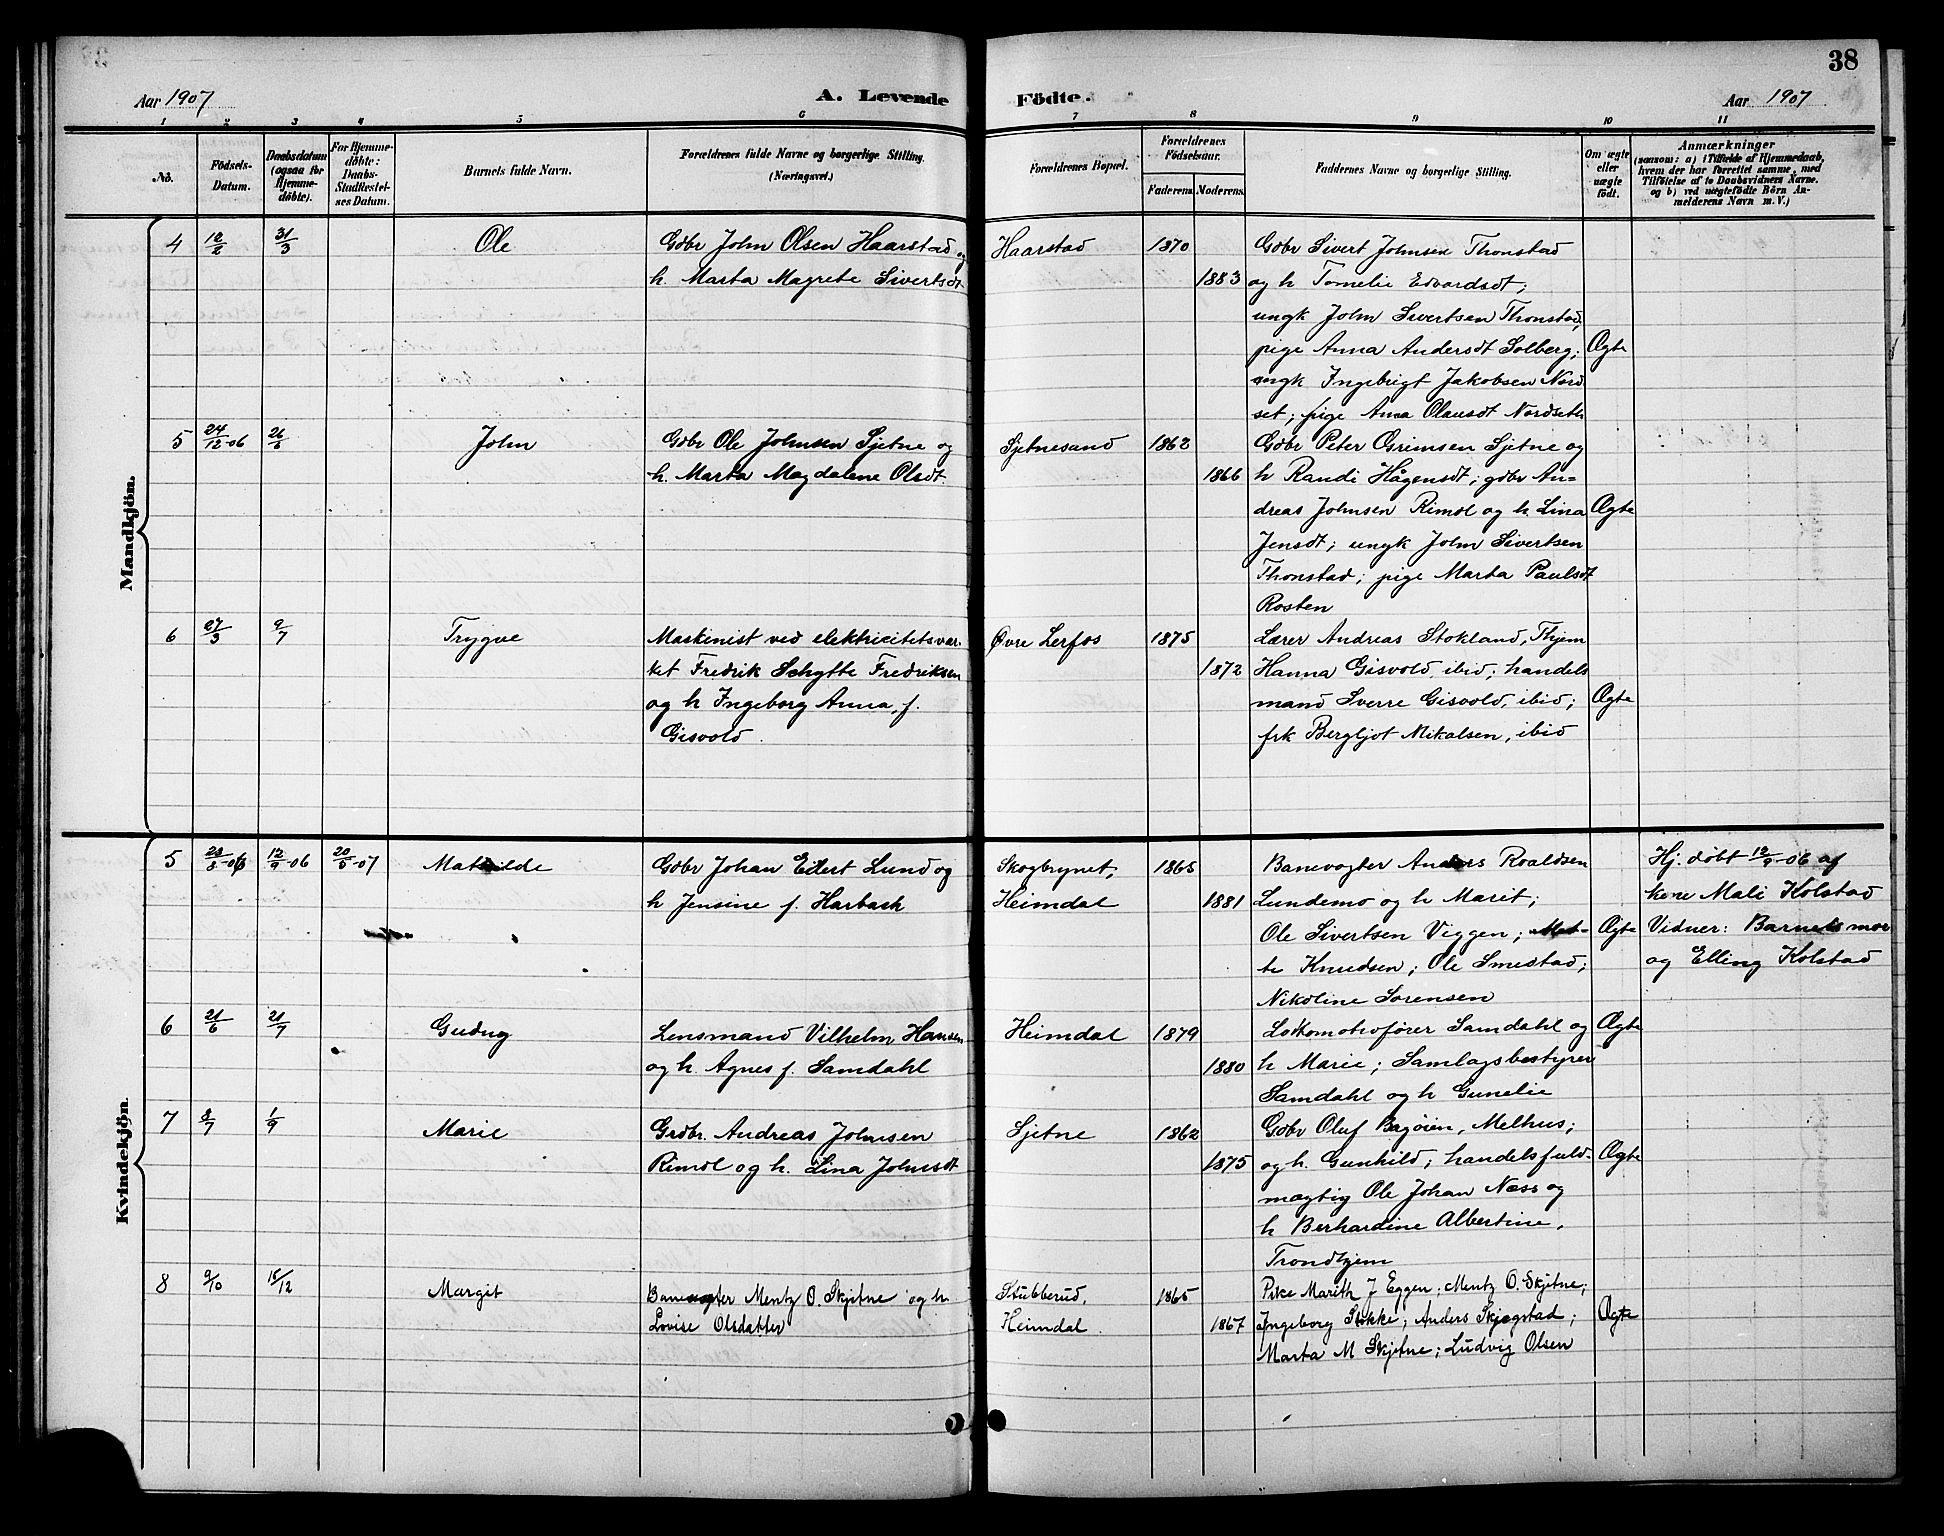 38
Aar 1907
A. Levende
Födte.
Aar 1907
1 2 3 4 5 6 7 8 9 10 11
No.
Födsels-
Datum.
Daabsdatum
(ogsaa for
Hjemme-
døbte).
For Hjemme-
døbte:
Daabs-
Stadfæstel-
ses Datum.
Barnets fulde Navn.
Forældrenes fulde Navne og borgerlige Stilling.
(Næringsvei.)
Forældrenes Bopæl.
Forældrenes
Fødselsaar.
Faderens. Moderens.
Faddernes Navne og borgerlige Stilling.
Om ægte
eller
uægte
født.
Anmærkninger
(saasom: a) i Tilfælde af Hjemmedaab,
hvem der har forrettet samme, med
Tilføielse af to Daabsvidners Navne.
og b) ved uægtefødte Börn An-
melderens Navn m. V.)
Mandkjön.
4
12/2
31/3
Ole
Gdbr John Olsen Haarstad og
h. Marta Magrete Sivertsdt
Haarstad
1870
1883
Gdbr Sivert Johnsen Thonstad
og h Tomelie Edvardsdt;
ungk John Sivertsen Thonstad;
pige Anna Andersdt Solberg;
ungk Ingebrigt Jakobsen Nord
set; pige Anna Olausdt Nordseth
Ægte
5
24/12-06
26/5
John
Gdbr Ole Johnsen Sjetne og
h. Marta Magdalene Olsdt
Sjetnesand
1862
1866
Gdbr Peter Grimsen Sjetne og
h Randi Hågensdt; gdbr An-
dreas Johnsen Rimol og h. Lina
Jensdt; ungk John Sivertsen
Thonstad; pige Marta Paulsdt
Rosten
Ægte
6
27/3
9/7
Trygve
Maskinist ved elektricitetsvær
ket Fredrik Schytte Fredriksen
og h Ingeborg Anna, f.
Gisvold.
Øvre Lerfos
1875
1872
Lærer Andreas Stokland, Thjem
Hanna Gisvold, ibid; handels
mand Sverre Gisvold, ibid;
frk Bergljot Mikalsen, ibid
Ægte
Kvindekjön.
5
12/9-06
20/5-07
Mathilde
Gdbr Johan Edert Lund og
h Jensine f. Harbach
Skogbrynet,
Heimdal
1865
1881
Banevogter Anders Roaldsen
Lundemo og h Marit;
Ole Sivertsen Viggen; Met-
te Knudsen; Ole Smestad;
Nikoline Sorensen
Ægte
Hj. døbt 12/9-06 af
kone Mali Kolstad
Vidner: Barnets mor
og Elling Kolstad
6
21/6
21/7
Gudny
Lensmand Vilhelm Hansen
og h. Agnes f. Samdahl
Heimdal
1879
1880
Lokomotivfører Samdahl og
h Marie; Samlagsbestyrer
Samdahl og h Gunelie
Ægte
7
8/7
1/9
Marie
Grdbr. Andreas Johnsen
Rimol og h. Lina Johnsdt
Sjetne
1862
1875
Gdbr Oluf Bagøien, Melhus;
og h. Gunhild; handelsfuld-
mægtig Ole Johan Næss og
h Berhardine Albertine,
Trondhjem
Ægte
8
9/10
15/12
Margit
Banevogter Mentz O. Skjetne og h
Lovise Olsdatter
Stubberud,
Heimdal.
1865
1867
Pike Marith J Eggen; Mentz O. Skjetne;
Ingeborg Stokke; Anders Skjegstad;
Marta M Skjetne; Ludvig Olsen
Ægte